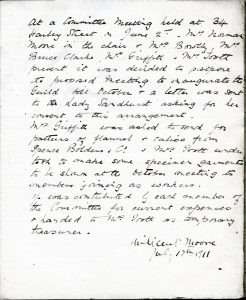 At a Committee Meeting held at 34
Harley Street on June 2nd - Mrs Norman
Moore in the chair & Mrs Bowlby, Mrs
Bruce Clarke, Mrs Griffith & Mrs Scott
present - it was decided to postpone
the proposed meeting to inaugurate the
Guild till October & a letter was sent
to the Lady Sandhurst asking for her
consent to this arrangement.
Mrs Griffith was asked to send for
patterns of flannel & calico from
& Mrs Scott under
took to make some specimen garments
to be shown at the October meeting to
members joining as workers.
was contributed by each member of
the Committee for current expenses
& handed to Mrs Scott as temporary
treasurer.
Milicent Moore
July 1911